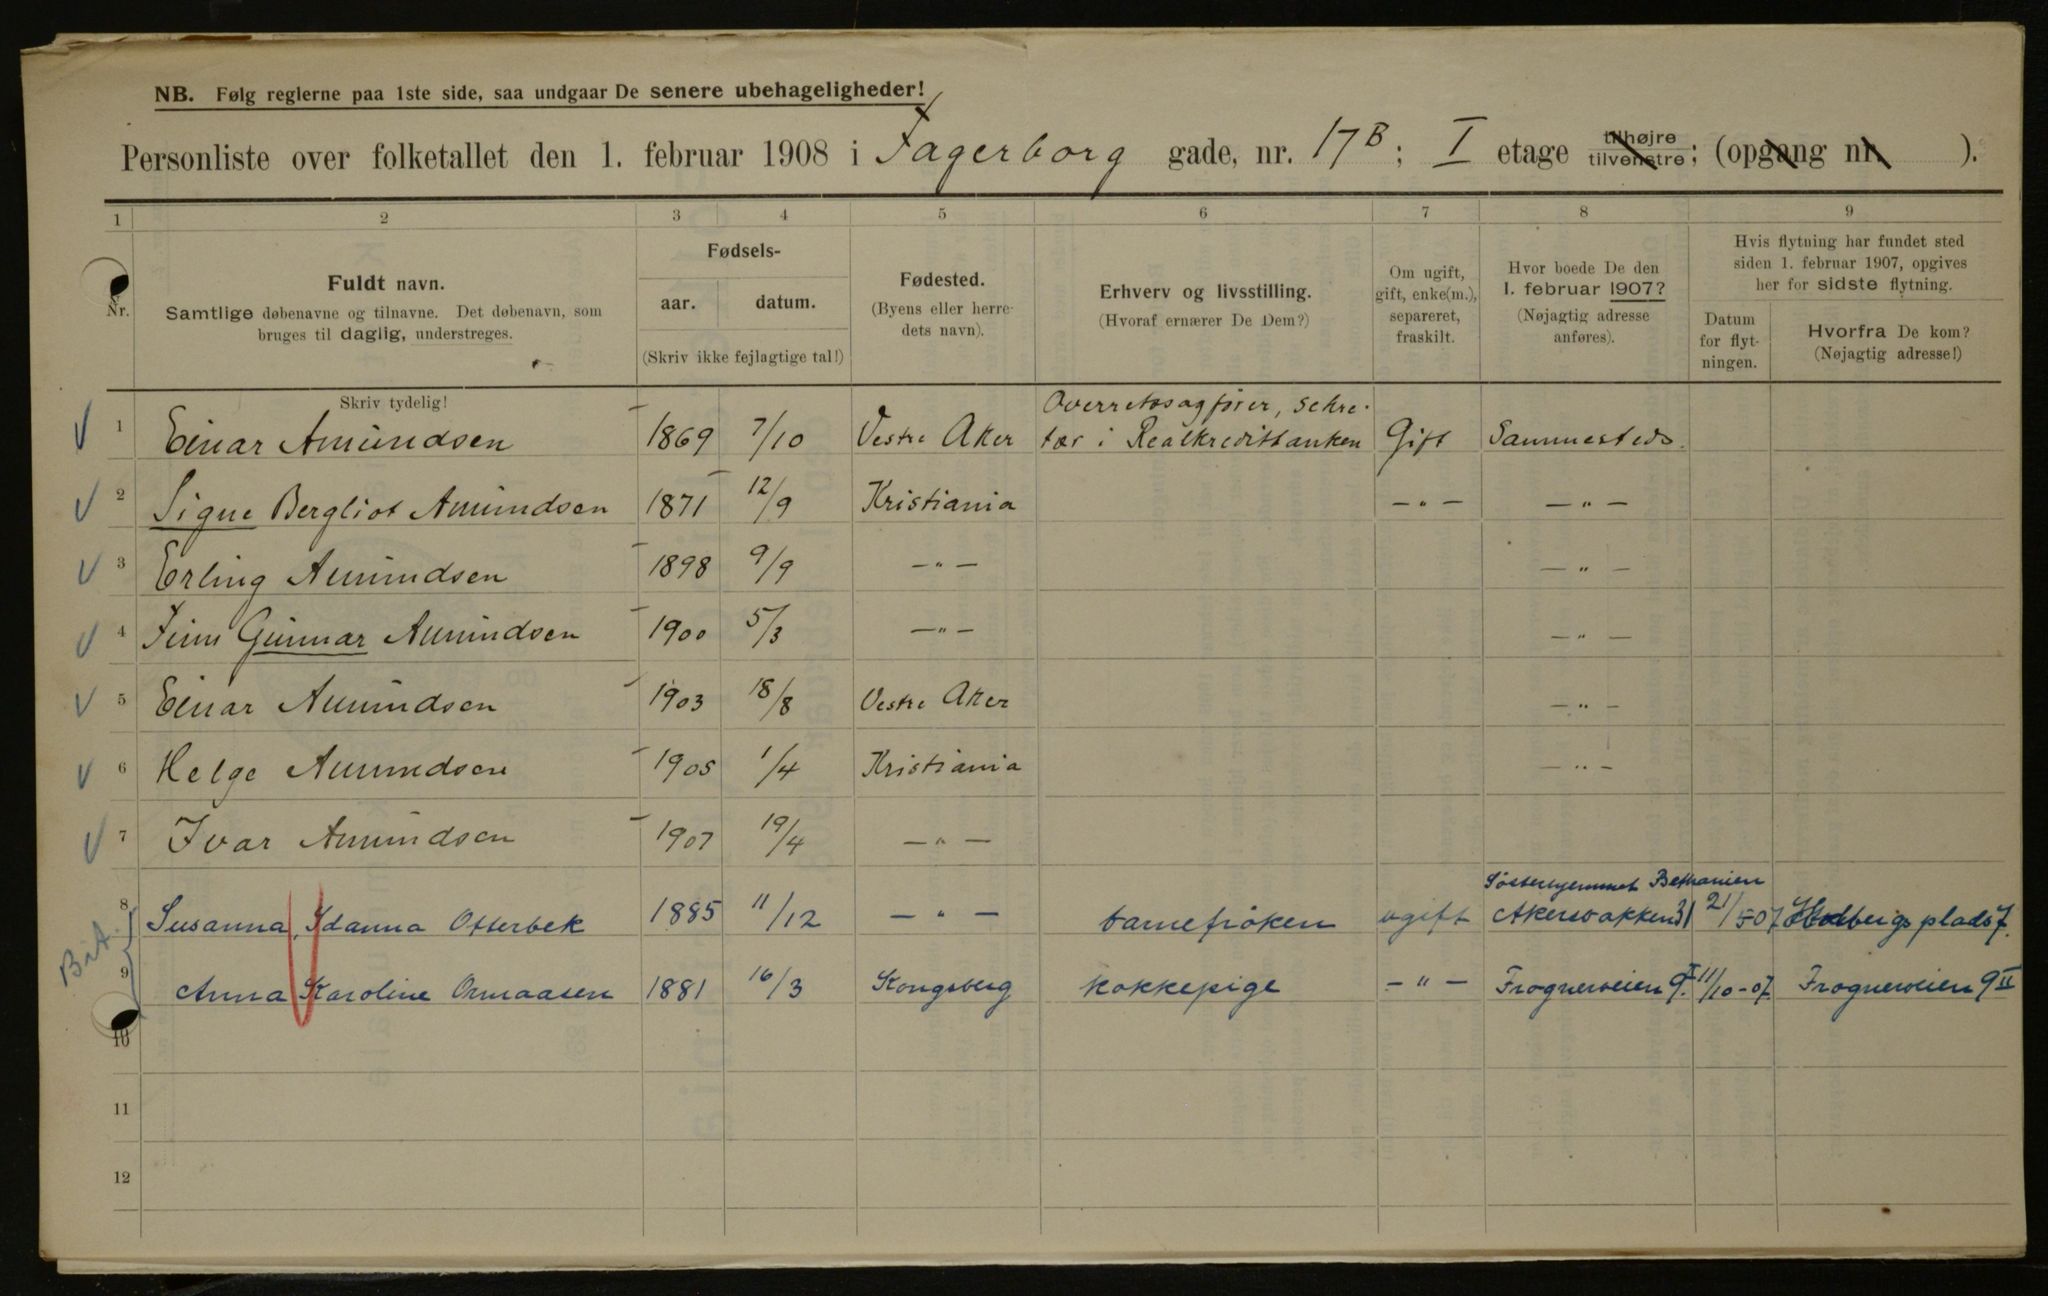 NB. Følg reglerne paa 1ste side, saa undgaar De senere ubehageligheder!
Personliste over folketallet den 1. februar 1908 i Fagerborg gade, nr. 17B; I etage tilhøjre tilvenstre; (opgang nr. ).
1 2 3 4 5 6 7 8 9
Nr.
Fuldt navn.
Samtlige døbenavne og tilnavne. Det døbenavn, som
bruges til daglig, understreges.
Skriv tydelig!
Fødsels-
aar. datum.
(Skriv ikke fejlagtige tal!)
Fødested.
(Byens eller herre-
dets navn).
Erhverv og livsstilling.
(Hvoraf ernærer De Dem?)
Om ugift,
gift, enke(m.),
separeret,
fraskilt.
Hvor boede De den
1. februar 1907?
(Nøjagtig adresse
anføres).
Hvis flytning har fundet sted
siden 1. februar 1907, opgives
her for sidste flytning.
Datum
for flyt-
ningen.
Hvorfra De kom?
(Nøjagtig adresse!)
Overretssagfører, sekre-
1 Einar Amundsen 1869 7/10 Vestre Aker tær i Realkreditbanken Gift Sammesteds.
2 Signe Bergliot Amundsen 1871 12/9 Kristiania — " — — " —
3 Erling Amundsen 1898 9/9 — " — — " —
4 Finn Gunnar Amundsen 1900 5/3 — " — — " —
5 Einar Amundsen 1903 18/8 Vestre Aker — " —
6 Helge Amundsen 1905 1/4 Kristiania — " —
7 Ivar Amundsen 1907 19/4 — " —
Søsterhjemmet Bethanien
8 Susanna Idanna Otterbek 1885 11/12 — " — barnefrøken ugift Akersbakken 31 21/5-07 Holbergs plads 7.
Bet.
9 Anna Karoline Ormaasen 1881 16/3 Kongsberg kokkepige — " — Frognerveien 9. 11/10-07. Frognerveien 9 II
10
11
12